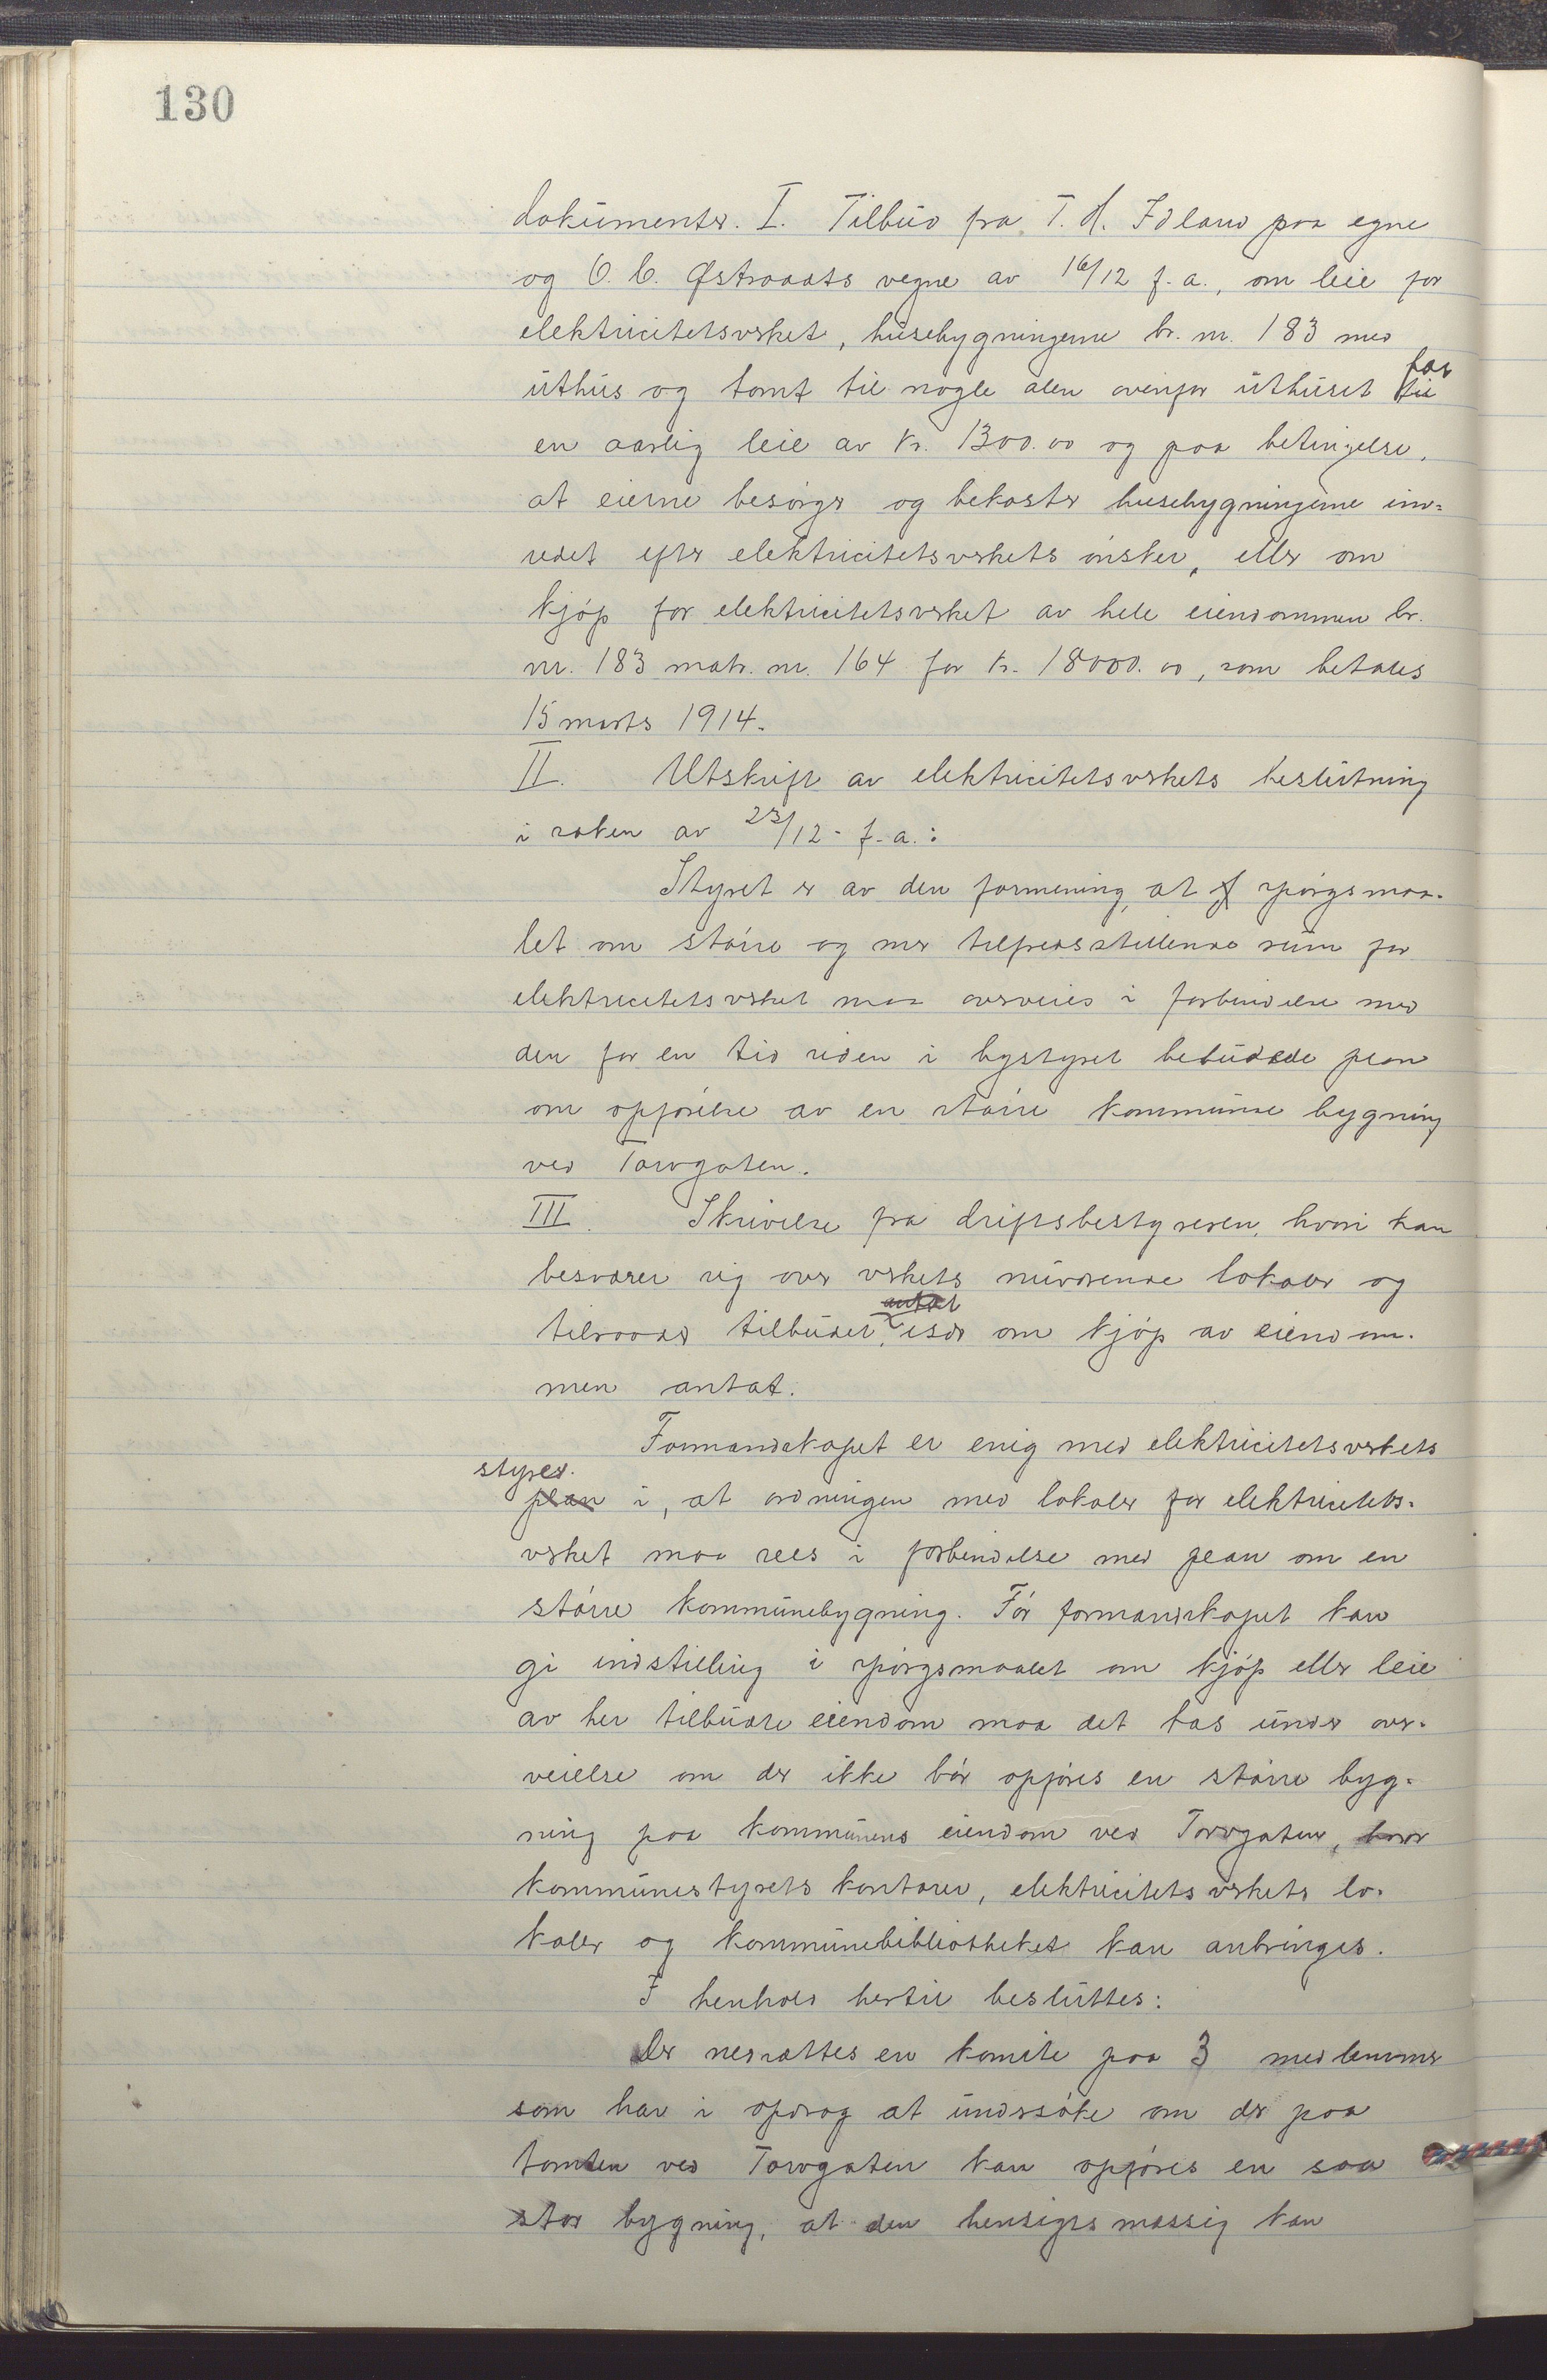 130
dokumenter. I. Tilbud fra T. H. Idland paa egne
og O. C. Østraadts vegne av 16/12 f. a., om leie for
elektricitetsverket, husebygningerne br. nr. 183 med
uthus og tomt til nogle alen ovenfor uthuset til for
en aarlig leie av kr. 1300.00 og paa betingelse,
at eierne besørger og bekoster husebygningerne ind-
redet efter elektricitetsverkets ønsker, eller om
kjøp for elektricitetsverket av hele eiendommen br.
nr. 183 matr. nr. 164 for kr. 18000.00, som betales
15 marts 1914.
II. Utskrift av elektricitetsverkets beslutning
i saken av 23/12 - f. a.:
Styret er av den formening, at spørgsmaa-
let om større og mer tilfredsstillende rum for
elektricitetsverket maa overveies i forbindelse med
den for en tid siden i bystyret bebudede plan
om opførelse av en større kommunal bygning
ved Torvgaten.
III. Skrivelse fra driftsbestyreren, hvori han
besværer sig over verkets nuværende lokaler og
tilraader tilbudet, antat især om kjøp av eiendom-
men antat.
Formandskapet er enig med elektricitetsverkets
styre
plan i, at ordningen med lokaler for elektricitets-
verket maa sees i forbindelse med plan om en
større kommunebygning. Før formandskapet kan
gi indstilling i spørgsmaalet om kjøp eller leie
av her tilbudte eiendom maa det tas under over-
veielse om der ikke bør opføres en større byg-
ning paa kommunens eiendom ved Torvgaten, hvor
kommunestyrets kontorer, elektricitetsverkets lo-
kaler og kommunebibliotheket kan anbringes.
I henhold hertil besluttes:
Der nedsættes en komite paa 3 medlemmer
som har i opdrag at undersøke om der paa
tomten ved Torvgaten kan opføres en saa
stor bygning, at den hensigtsmæssig kan